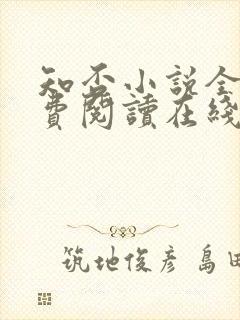 知否小说全
費閱讀在綫
筑地俊彦 島田